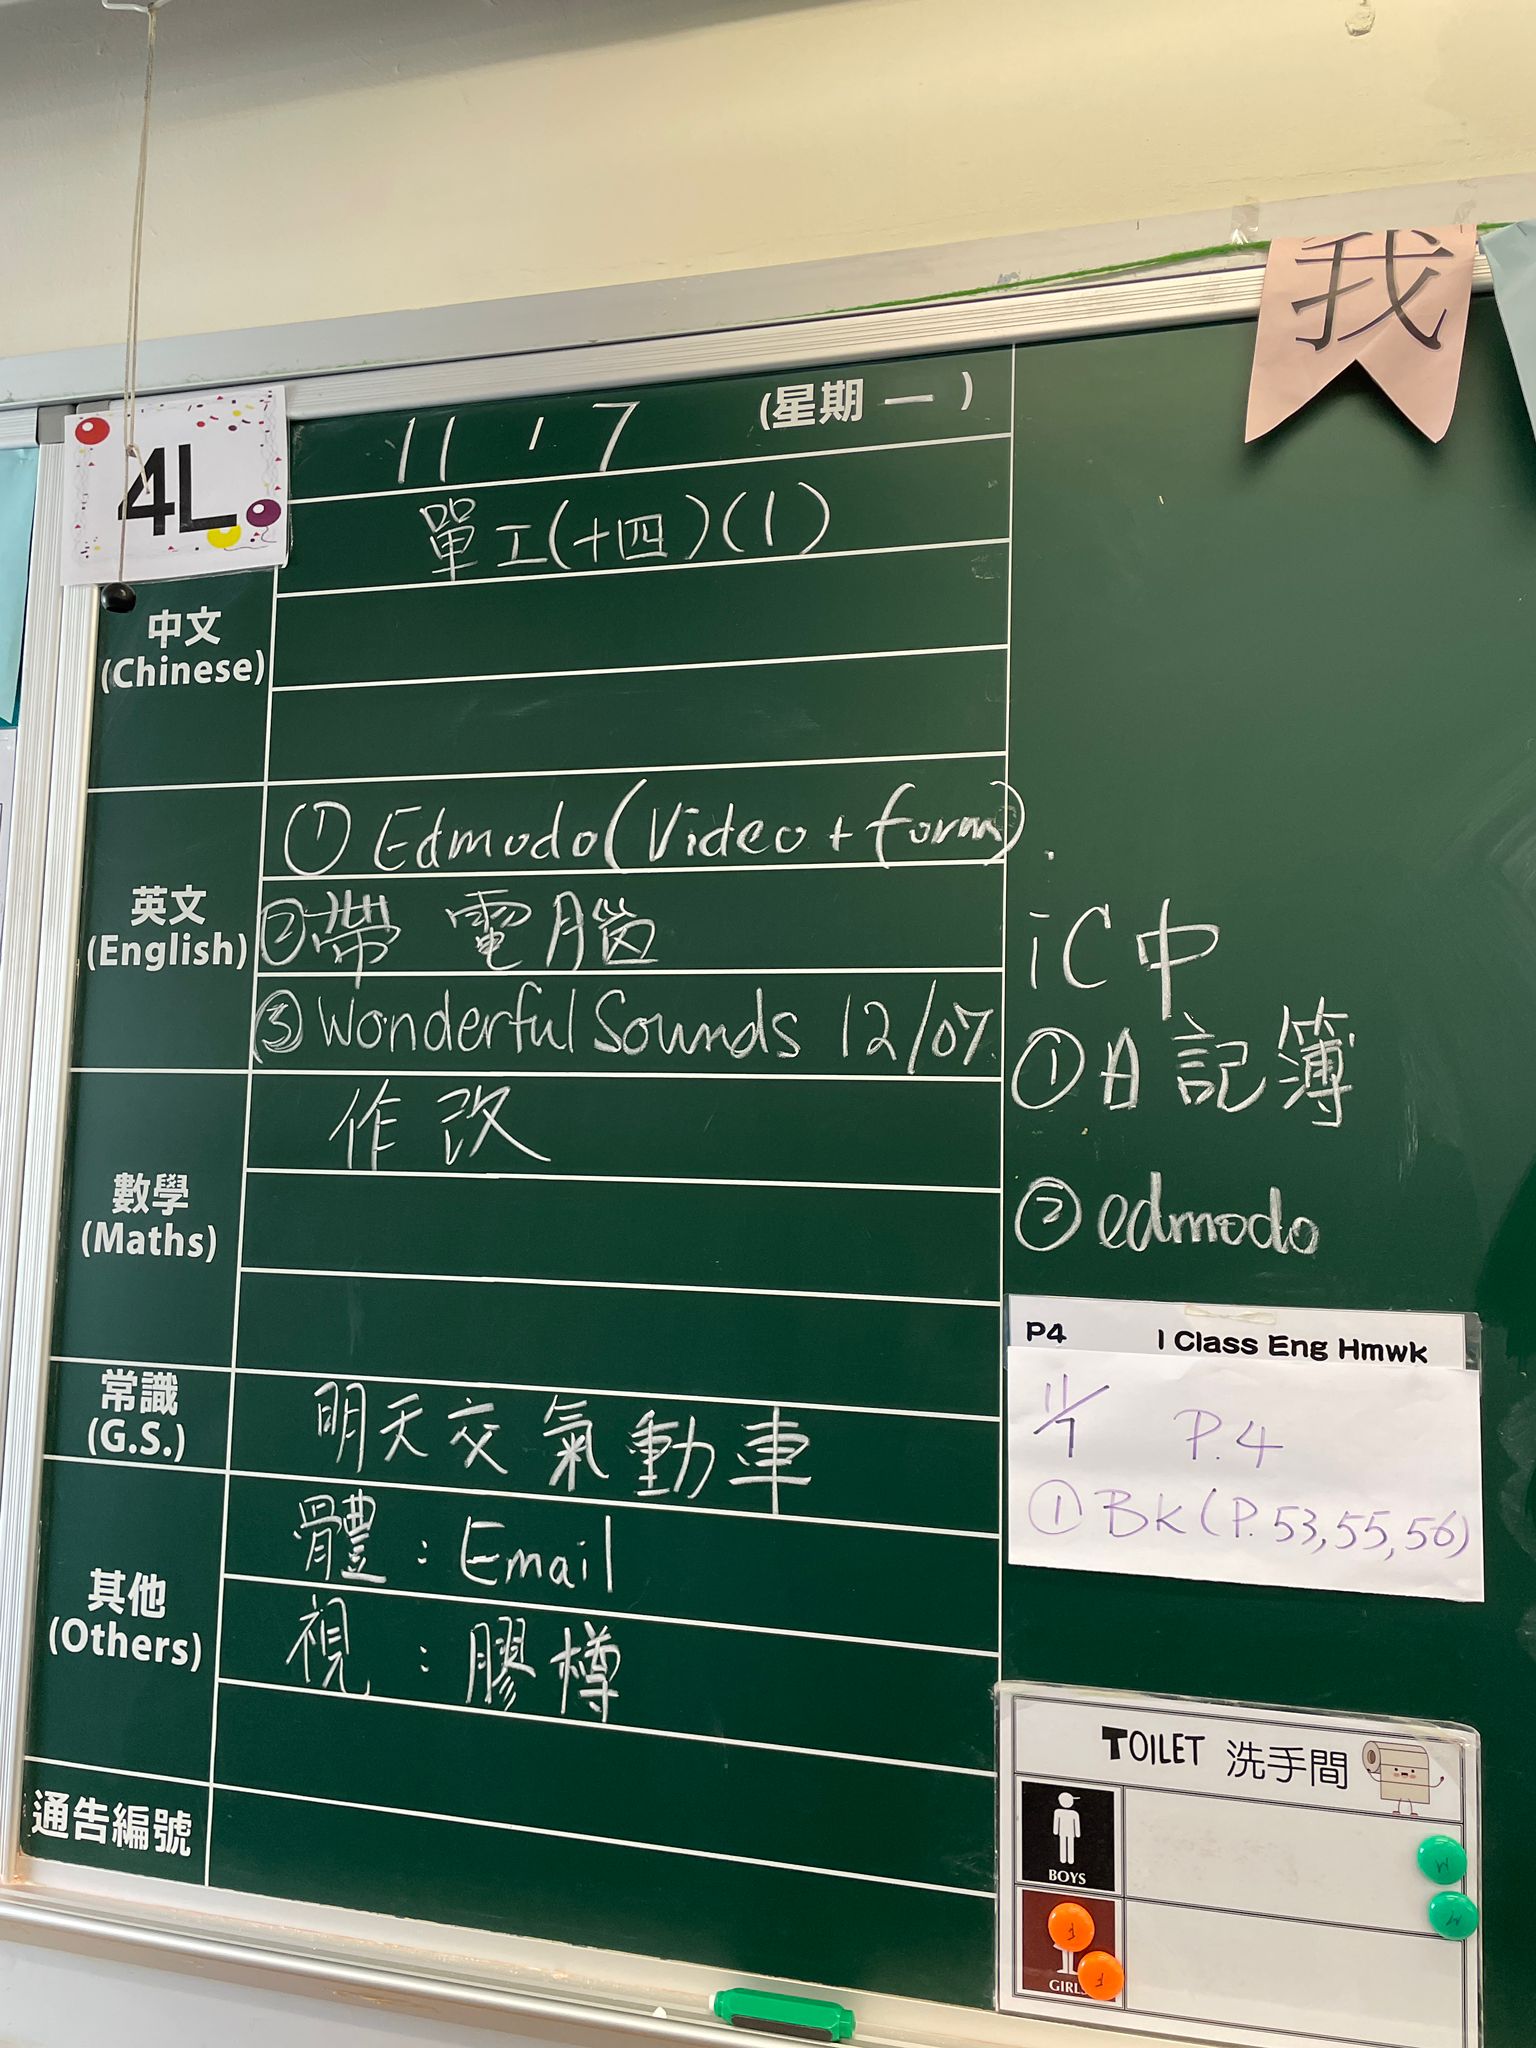 我
4L
11 ' 7 (星期 一 )
單工(十四)(1)
中文
(Chinese)
英文
(English)
① Edmodo(Video + form).
②帶 電腦
③ Wonderful Sounds 12/07.
數學
(Maths)
作改
常識
(G.S.)
明天交氣動車
其他
(Others)
體 : Email
視 : 膠樽
通告編號
iC中
①日記簿
② edmodo
P4 I Class Eng Hmwk
11/7 P.4
① BK (P. 53, 55, 56)
TOILET 洗手間
BOYS
M
M
GIRLS
F
F